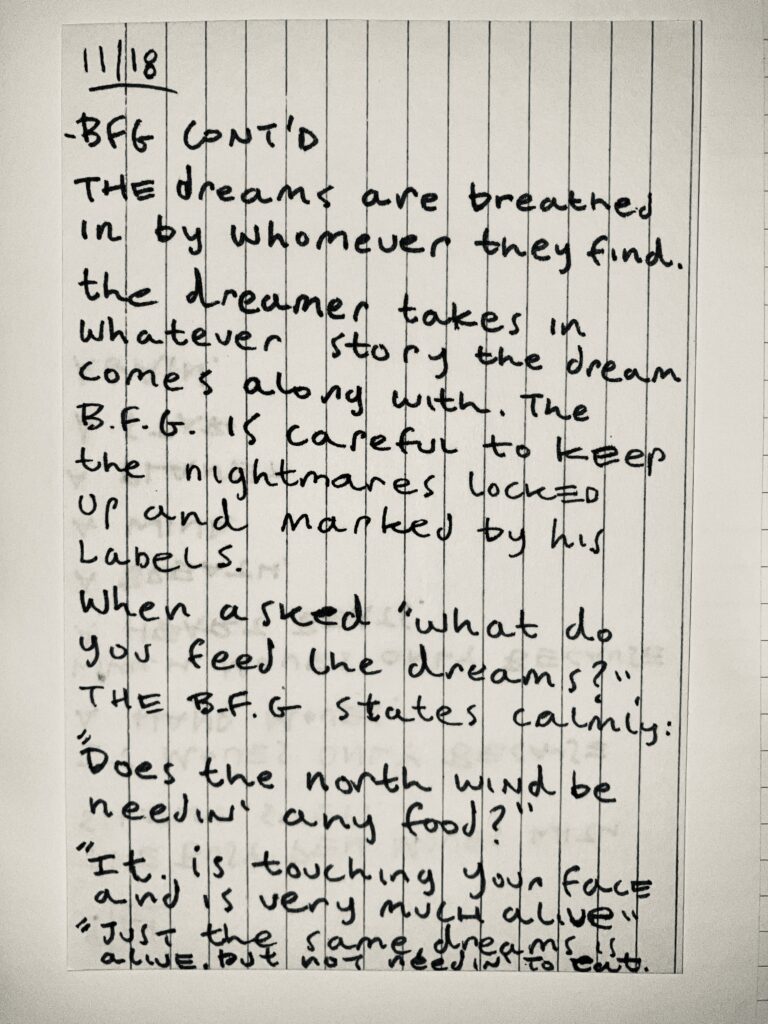 11/18
-BFG CONT'D
THE dreams are breathed
in by whomever they find.
the dreamer takes in
whatever story the dream
comes along with. The
B.F.G. is careful to keep
the nightmares locked
up and marked by his
Labels.
When asked "what do
you feed the dreams?"
THE B.F.G states calmly:
"Does the north wind be
needin' any food?"
"It is touching your face
and is very much alive"
"Just the same dreams is
alive, but not needin' to eat.